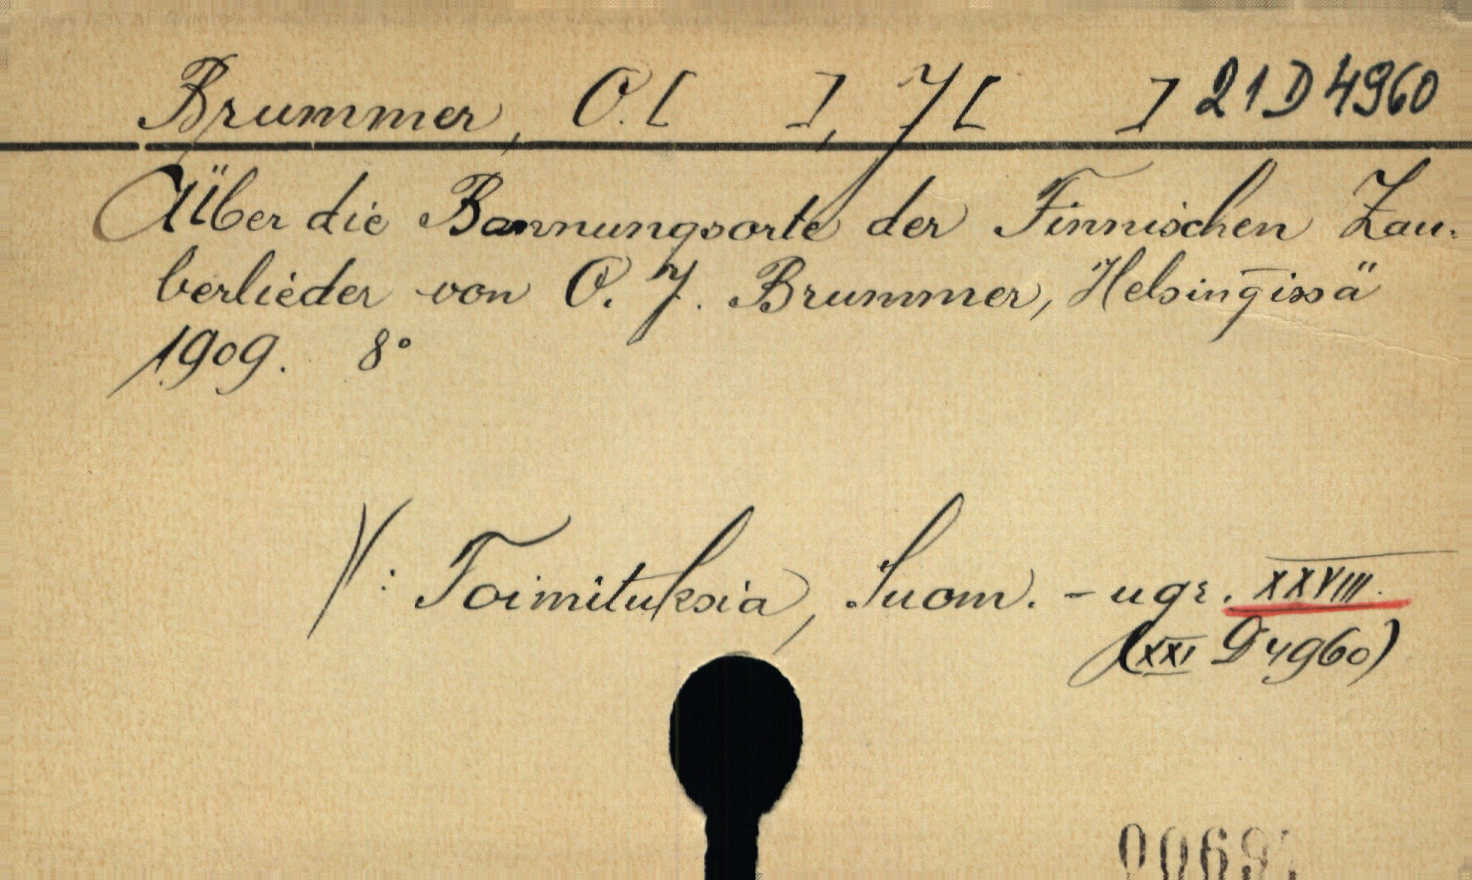 Brummer, O. [ ], J [ ] 21 D 4960
Über die Bannungsorte der Finnischen Zau-
berlieder von O. J. Brummer, Helsingissä
1909. 8°
V: Toimituksia, Suom. - ugr. XXVIII.
(XXI D 4960)